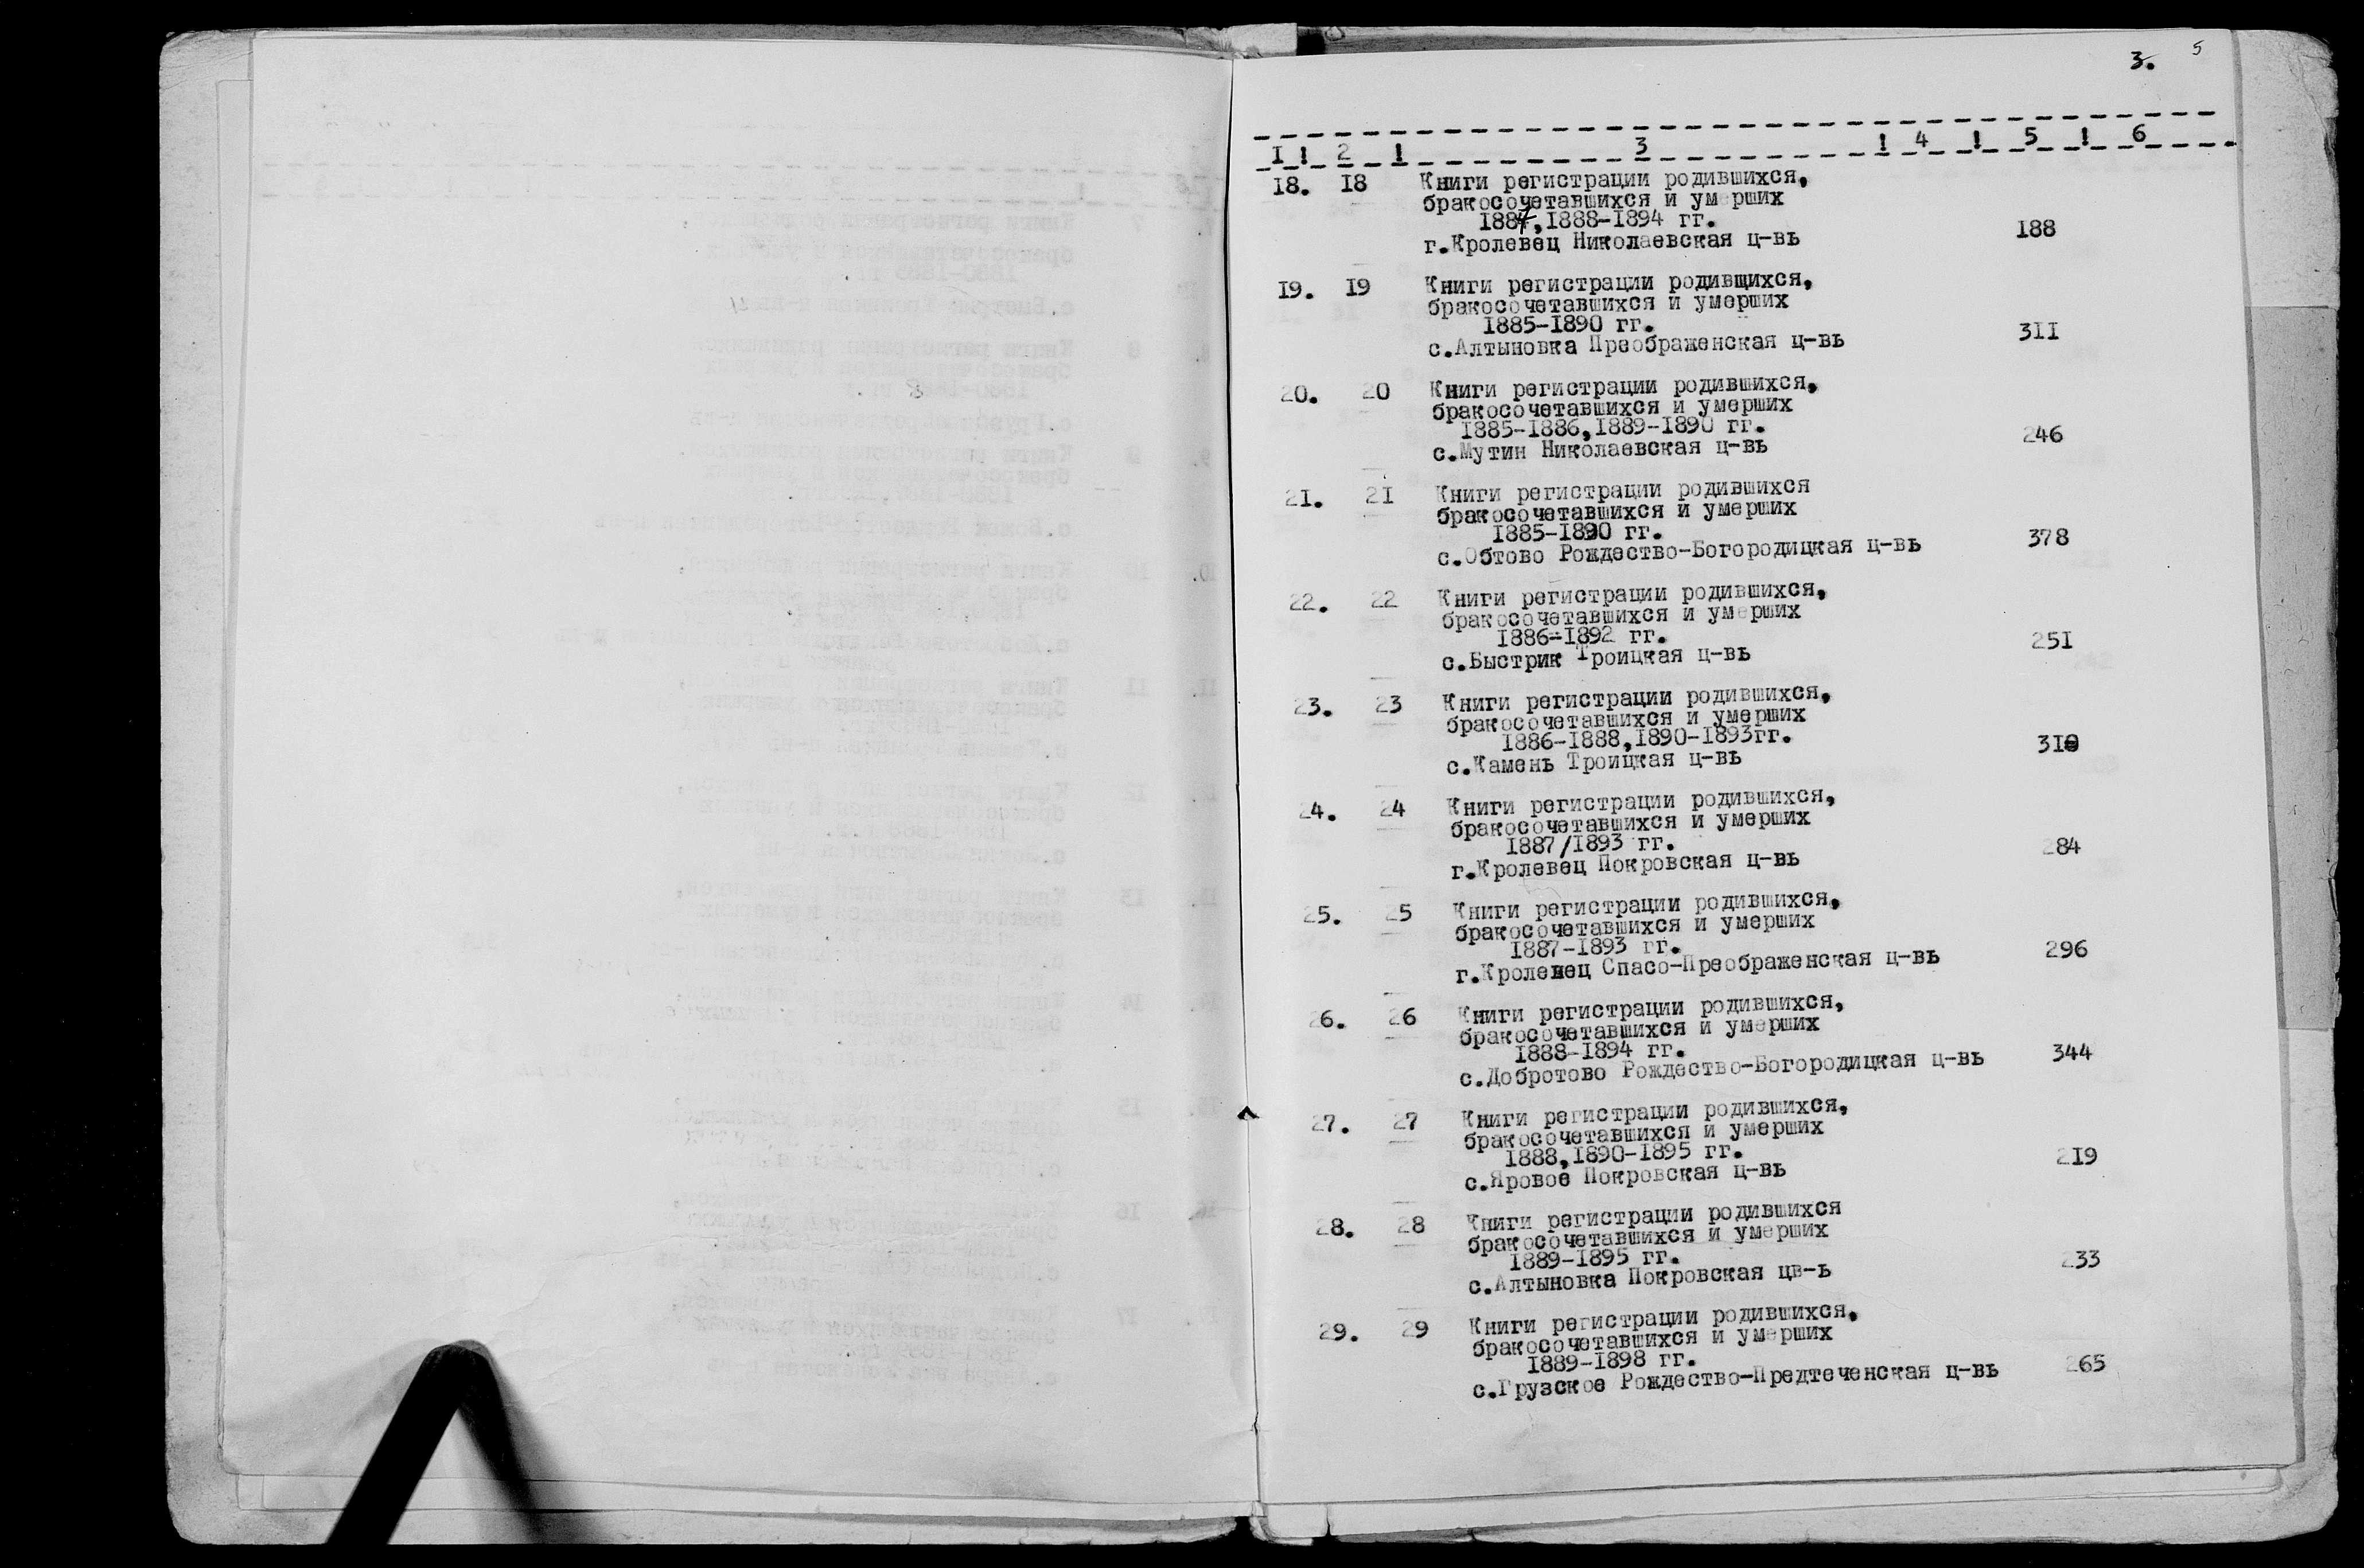 3. 5
I ! 2 ! 3 ! 4 ! 5 ! 6
I8. I8 Книги регистрации родившихся,
бракосочетавшихся и умерших
1884,I888-I894 гг.
г.Кролевец Николаевская ц-вь I88
I9. I9 Книги регистрации родивщихся,
бракосочетавшихся и умерших
I885-I890 гг.
с.Алтыновка Преображенская ц-вь 3II
20. 20 Книги регистрации родившихся,
бракосочетавшихся и умерших
I885-I886,I889-I890 гг.
с.Мутин Николаевская ц-вь 246
2I. 2I Книги регистрации родившихся
бракосочетавшихся и умерших
I885-I890 гг.
с.Обтово Рождество-Богородицкая ц-вь 378
22. 22 Книги регистрации родившихся,
бракосочетавшихся и умерших
I886-I892 гг.
с.Быстрик Троицкая ц-вь 25I
23. 23 Книги регистрации родившихся,
бракосочетавшихся и умерших
I886-I888,I890-I893гг.
с.Камень Троицкая ц-вь
24. 24 Книги регистрации родившихся,
бракосочетавшихся и умерших
I887/I893 гг.
г.Кролевец Покровская ц-вь 284
25. 25 Книги регистрации родившихся,
бракосочетавшихся и умерших
I887-I893 гг.
г.Кролевец Спасо-Преображенская ц-вь 296
26. 26 Книги регистрации родившихся,
бракосочетавшихся и умерших
I888-I894 гг.
с.Добротово Рождество-Богородицкая ц-вь 344
27. 27 Книги регистрации родившихся,
бракосочетавшихся и умерших
I888,I890-I895 гг.
с.Яровое Покровская ц-вь 2I9
28. 28 Книги регистрации родившихся
бракосочетавшихся и умерших
I889-I895 гг.
с.Алтыновка Покровская цв-ь 233
29. 29 Книги регистрации родившихся,
бракосочетавшихся и умерших
I889-I898 гг.
с.Грузское Рождество-Предтеченская ц-вь 265